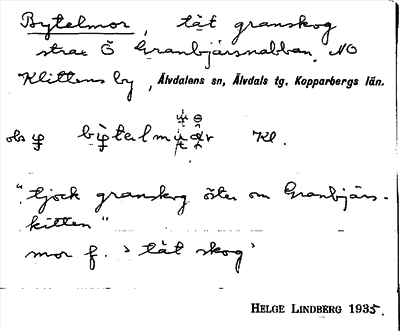 Bytelmor, tät granskog
strax Ö Granbjärsnabban, NO
Klittens by, Älvdalens sn, Älvdals tg. Kopparbergs län.
obs Kl.
"tjock granskog öster om Granbjärs-
kitten"
mor f. 'tät skog'
HELGE LINDBERG 1935.